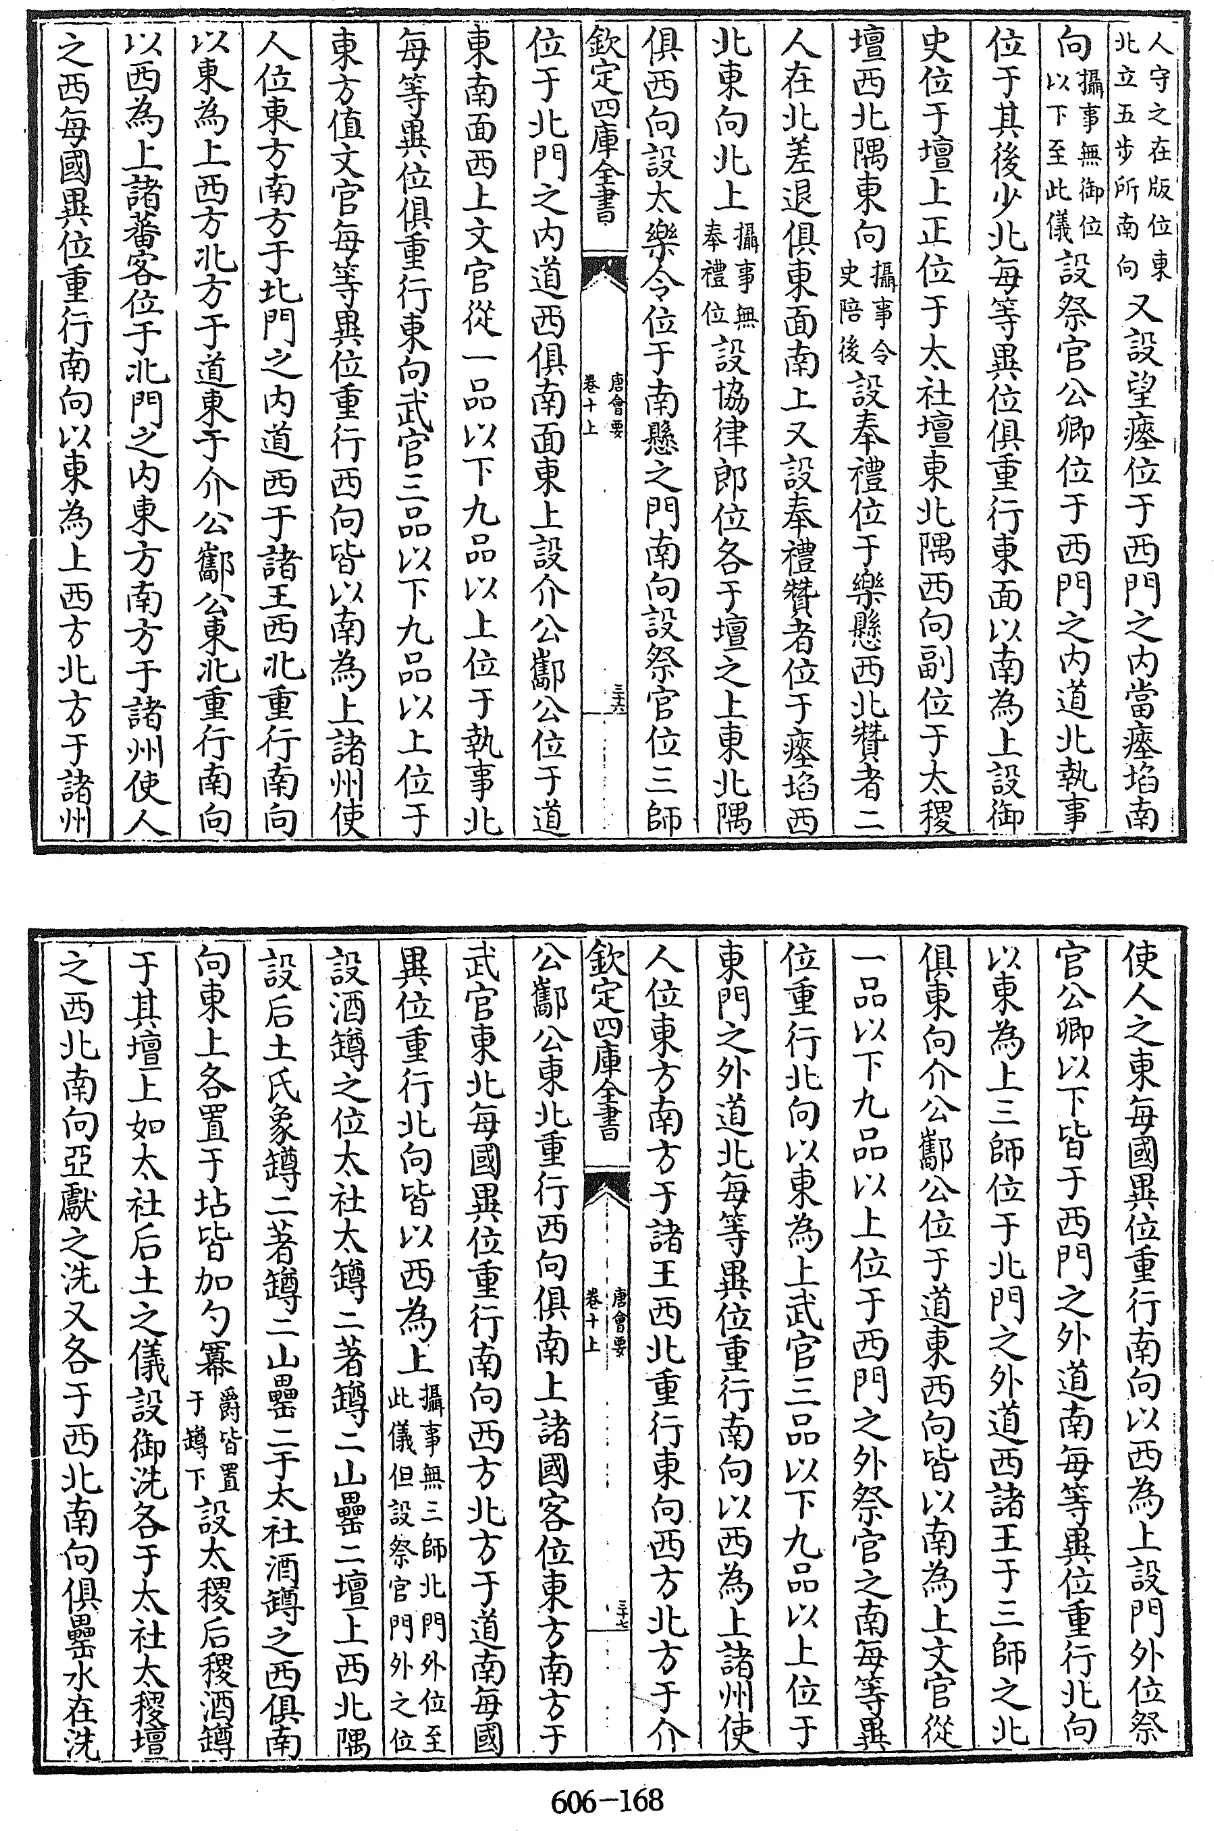 人守之在版位東
北立五步所南向
又設望瘞位于西門之内當瘞埳南
向
攝事無御位
以下至此儀
設祭官公卿位于西門之内道北執事
位于其後少北每等異位俱重行東面以南為上設御
史位于壇上正位于太社壇東北隅西向副位于太稷
壇西北隅東向
攝事令
史陪後
設奉禮位于樂懸西北贊者二
人在北差退俱東面南上又設奉禮贊者位于瘞埳西
北東向北上
攝事無
奉禮位
設協律郎位各于壇之上東北隅
俱西向設太樂令位于南懸之門南向設祭官位三師
欽定四庫全書
唐會要
卷十上
三十六
位于北門之内道西俱南面東上設介公酅公位于道
東南面西上文官從一品以下九品以上位于執事北
每等異位俱重行東向武官三品以下九品以上位于
東方值文官每等異位重行西向皆以南為上諸州使
人位東方南方于北門之内道西于諸王西北重行南向
以東為上西方北方于道東于介公酅公東北重行南向
以西為上諸蕃客位于北門之内東方南方于諸州使人
之西每國異位重行南向以東為上西方北方于諸州
使人之東每國異位重行南向以西為上設門外位祭
官公卿以下皆于西門之外道南每等異位重行北向
以東為上三師位于北門之外道西諸王于三師之北
俱東向介公酅公位于道東西向皆以南為上文官從
一品以下九品以上位于西門之外祭官之南每等異
位重行北向以東為上武官三品以下九品以上位于
東門之外道北每等異位重行南向以西為上諸州使
人位東方南方于諸王西北重行東向西方北方于介
欽定四庫全書
唐會要
卷十上
三十七
公酅公東北重行西向俱南上諸國客位東方南方于
武官東北每國異位重行南向西方北方于道南每國
異位重行北向皆以西為上
攝事無三師北門外位至
此儀但設祭官門外之位
設酒罇之位太社太罇二著罇二山罍二壇上西北隅
設后土氏象罇二著罇二山罍二于太社酒罇之西俱南
向東上各置于坫皆加勺冪
爵皆置
于罇下
設太稷后稷酒罇
于其壇上如太社后土之儀設御洗各于太社太稷壇
之西北南向亞獻之洗又各于西北南向俱罍水在洗
606-168